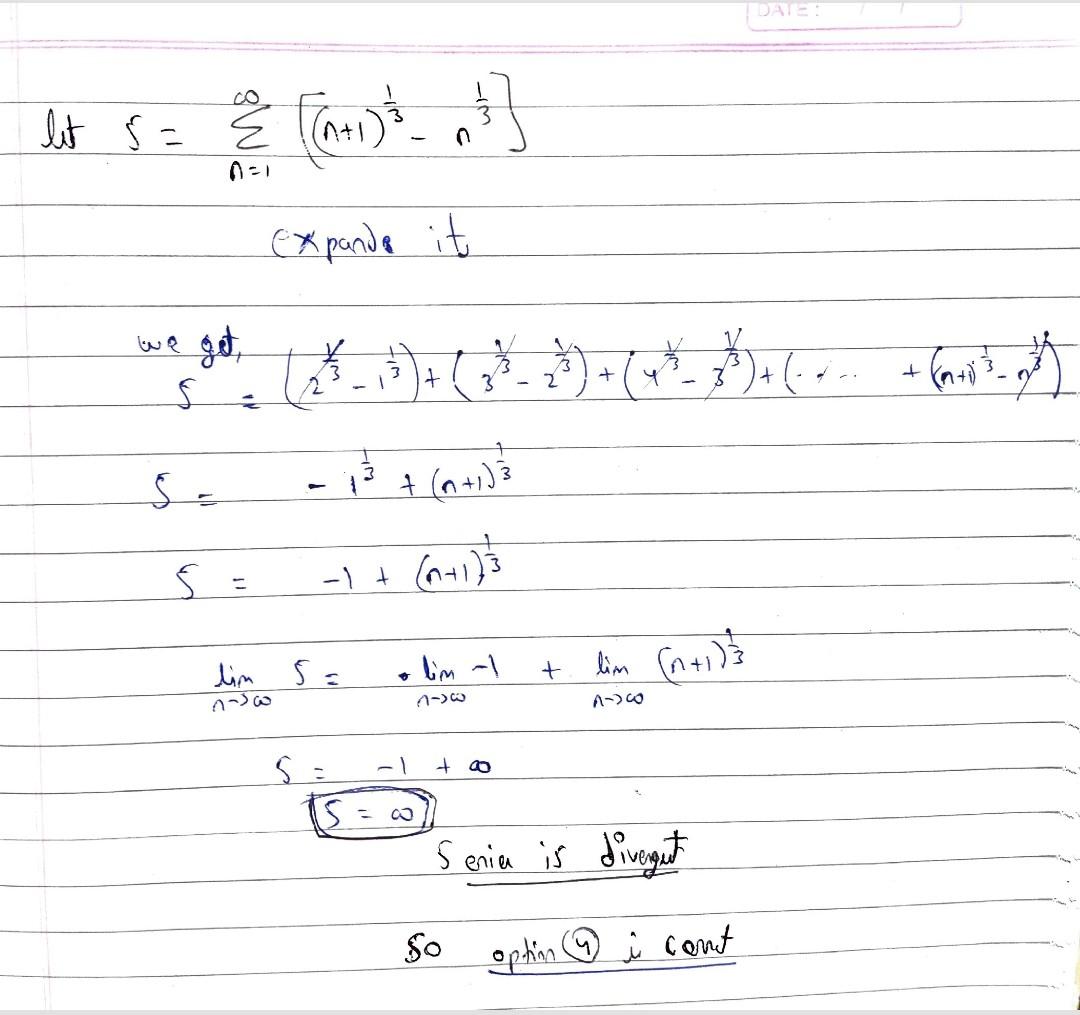 DATE: / /
let S = ∞ Σ n=1 [(n+1)^(1/3) - n^(1/3)]
expands it
we get,
S = (2^(1/3) - 1^(1/3)) + (3^(1/3) - 2^(1/3)) + (4^(1/3) - 3^(1/3)) + (..... + ((n+1)^(1/3) - n^(1/3))
S = - 1^(1/3) + (n+1)^(1/3)
S = -1 + (n+1)^(1/3)
lim n→∞ S = lim n→∞ -1 + lim n→∞ (n+1)^(1/3)
S = -1 + ∞
S = ∞
Series is divergent
So option (4) is correct